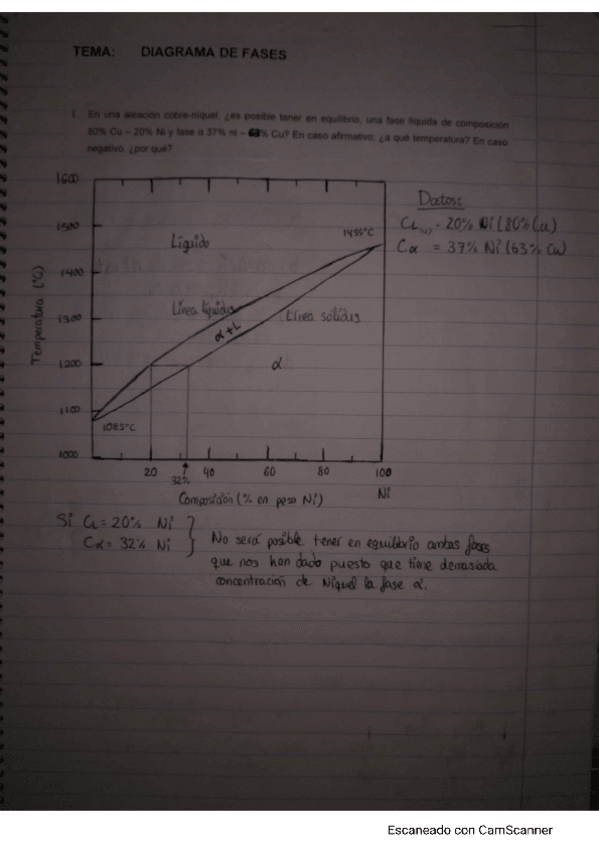 TEMA: DIAGRAMA DE FASES
1. En una aleación cobre-níquel, ¿es posible tener en equilibrio, una fase líquida de composición
80% Cu – 20% Ni y fase α 37% ni – 63% Cu? En caso afirmativo, ¿a qué temperatura? En caso
negativo, ¿por qué?
Datos:
= 20% Ni (80% Cu)
Cα = 37% Ni (63% Cu)
1600
1500
1400
1300
1200
1100
1000
Temperatura (°C)
Líquido
1455°C
Línea líquidus
α+L
Línea sólidus
α
1085°C
20
32%
40
60
80
100
Composición (% en peso Ni)
Ni
Si CL = 20% Ni
Cα = 32% Ni
No será posible tener en equilibrio ambas fases
que nos han dado puesto que tiene demasiada
concentración de Níquel la fase α.
Escaneado con CamScanner